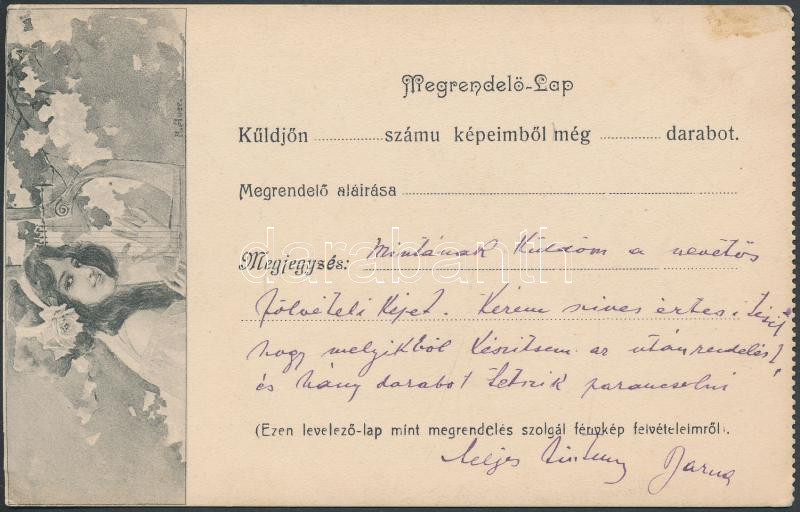 Megrendelő-Lap
Küldjön ........... számu képeimből még ........... darabot.
Megrendelő aláirása
Megjegyzés: Mintának Küldöm a nevetős
fölvételi Képet. Kérem szives értesitését
hogy melyikből Készitsem az utánrendelést
és hány darabot tetszik parancsolni
(Ezen levelező-lap mint megrendelés szolgál fénykép felvételeimről).
Teljes tisztelettel Barna
R. Auer.
darabanth